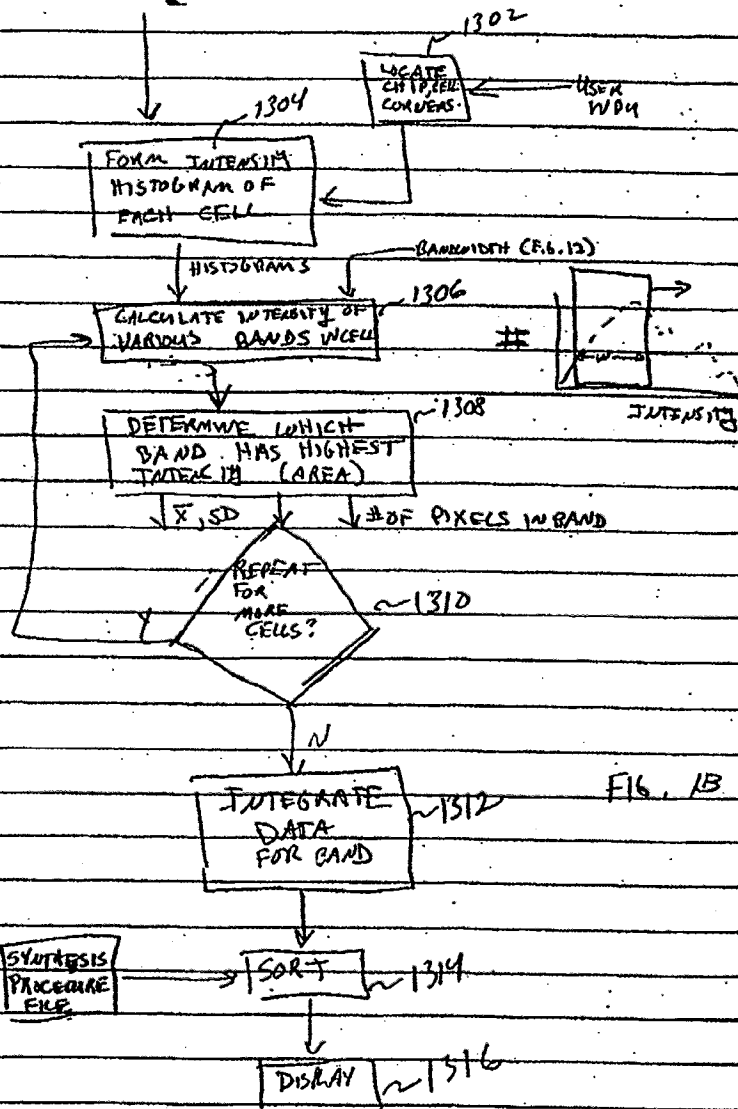 1302
LOCATE
CHIP, CELL
CORNERS.
USER
INPU
1304
FORM INTENSITY
HISTOGRAM OF
EACH CELL
HISTOGRAMS
BANDWIDTH (E.G. 12)
1306
CALCULATE INTENSITY OF
VARIOUS BANDS IN CELL
#
W
INTENSITY
1308
DETERMINE WHICH
BAND HAS HIGHEST
INTENSITY (AREA)
X̄, SD
# OF PIXELS IN BAND
REPEAT
FOR
MORE
CELLS?
1310
Y
N
INTEGRATE
DATA
FOR BAND
1312
FIG. 13
SYNTHESIS
PROCEDURE
FILE
SORT
1314
DISPLAY
1316